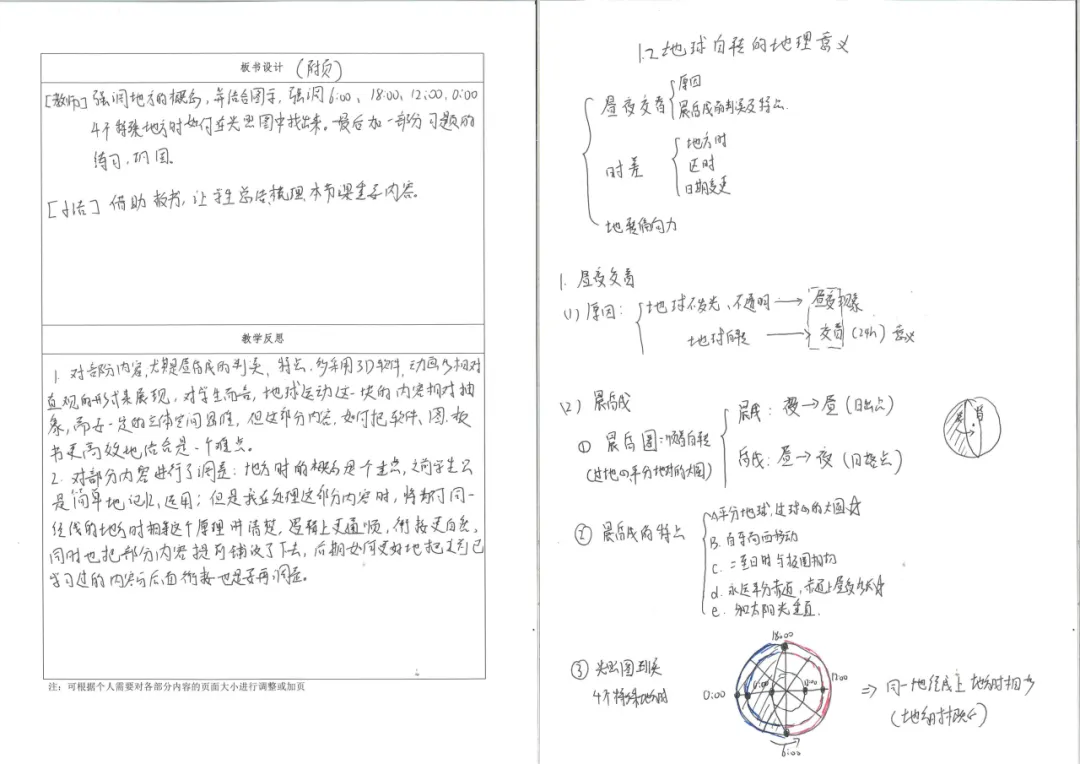 板书设计 (附页)
[教师] 强调地方时的概念，并结合图示，强调6:00、18:00、12:00、0:00
4个特殊地方时如何在光照图中找出来。最后加一部分习题的
练习，巩固。
[小结] 借助板书，让学生总结梳理本节课重要内容。
教学反思
1. 对部分内容，尤其是晨昏线的判读、特点，多采用3D软件，动画等相对
直观的形式来展现，对学生而言，地球运动这一块的内容相对抽
象，需要一定的立体空间思维，但这部分内容，如何把软件、图、板
书更高效地结合是一个难点。
2. 对部分内容进行了调整：地方时的概念是个重点，之前学生只
是简单地记忆、运用；但是我在处理这部分内容时，将
经线的地方时相等这个原理讲清楚，逻辑上更通顺，衔接更自然，
同时也把部分内容提前铺设了下去，后期如何更好地把之前已
学习过的内容与后面衔接也是要再调整。
注：可根据个人需要对各部分内容的页面大小进行调整或加页
1.2 地球自转的地理意义
昼夜交替
原因
晨昏线的判读及特点.
时差
地方时
区时
日期变更
地转偏向力
1. 昼夜交替
(1) 原因：
地球不发光、不透明 → 昼夜现象
地球自转 → 交替 (24h) 意义
(2) 晨昏线
① 晨昏圈：顺着自转
(过地心平分地球的大圆)
晨线：夜→昼 (日出点)
昏线：昼→夜 (日落点)
夜 昼
② 晨昏线的特点
A. 平分地球，过球心的大圆☆
B. 自东向西移动
c. 二至日时与极圈相切
d. 永远平分赤道，赤道上昼夜等长☆
e. 和太阳光垂直.
③ 光照图判读
4个特殊地方时
18:00
0:00
12:00
6:00
⇒ 同一地经线上地方时相等
(地方时概念)